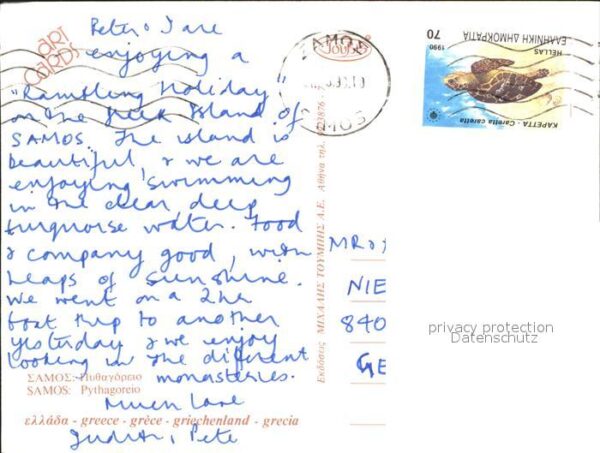 Peter & I are
enjoying a
"Rambling Holiday"
on the Greek Island of
SAMOS. The island is
beautiful & we are
enjoying swimming
in the clear deep
turquoise water. Food
& company good, with
heaps of sunshine.
We went on a 2hr
boat trip to another
yesterday & we enjoy
looking in the different
monasteries.
Much Love
Judith, Pete
ART
CARDS
ΣΑΜΟΣ: Πυθαγόρειο
SAMOS: Pythagoreio
ελλάδα - greece - grèce - griechenland - grecia
Εκδόσεις ΜΙΧΑΛΗΣ ΤΟΥΜΠΗΣ Α.Ε. Αθήνα τηλ.
Toubi's
ΣΑΜΟΣ
70
1990
ΕΛΛΗΝΙΚΗ ΔΗΜΟΚΡΑΤΙΑ
HELLAS
ΚΑΡΕΤΤΑ - Caretta caretta
MR &
NIE
840
GE
privacy protection
Datenschutz